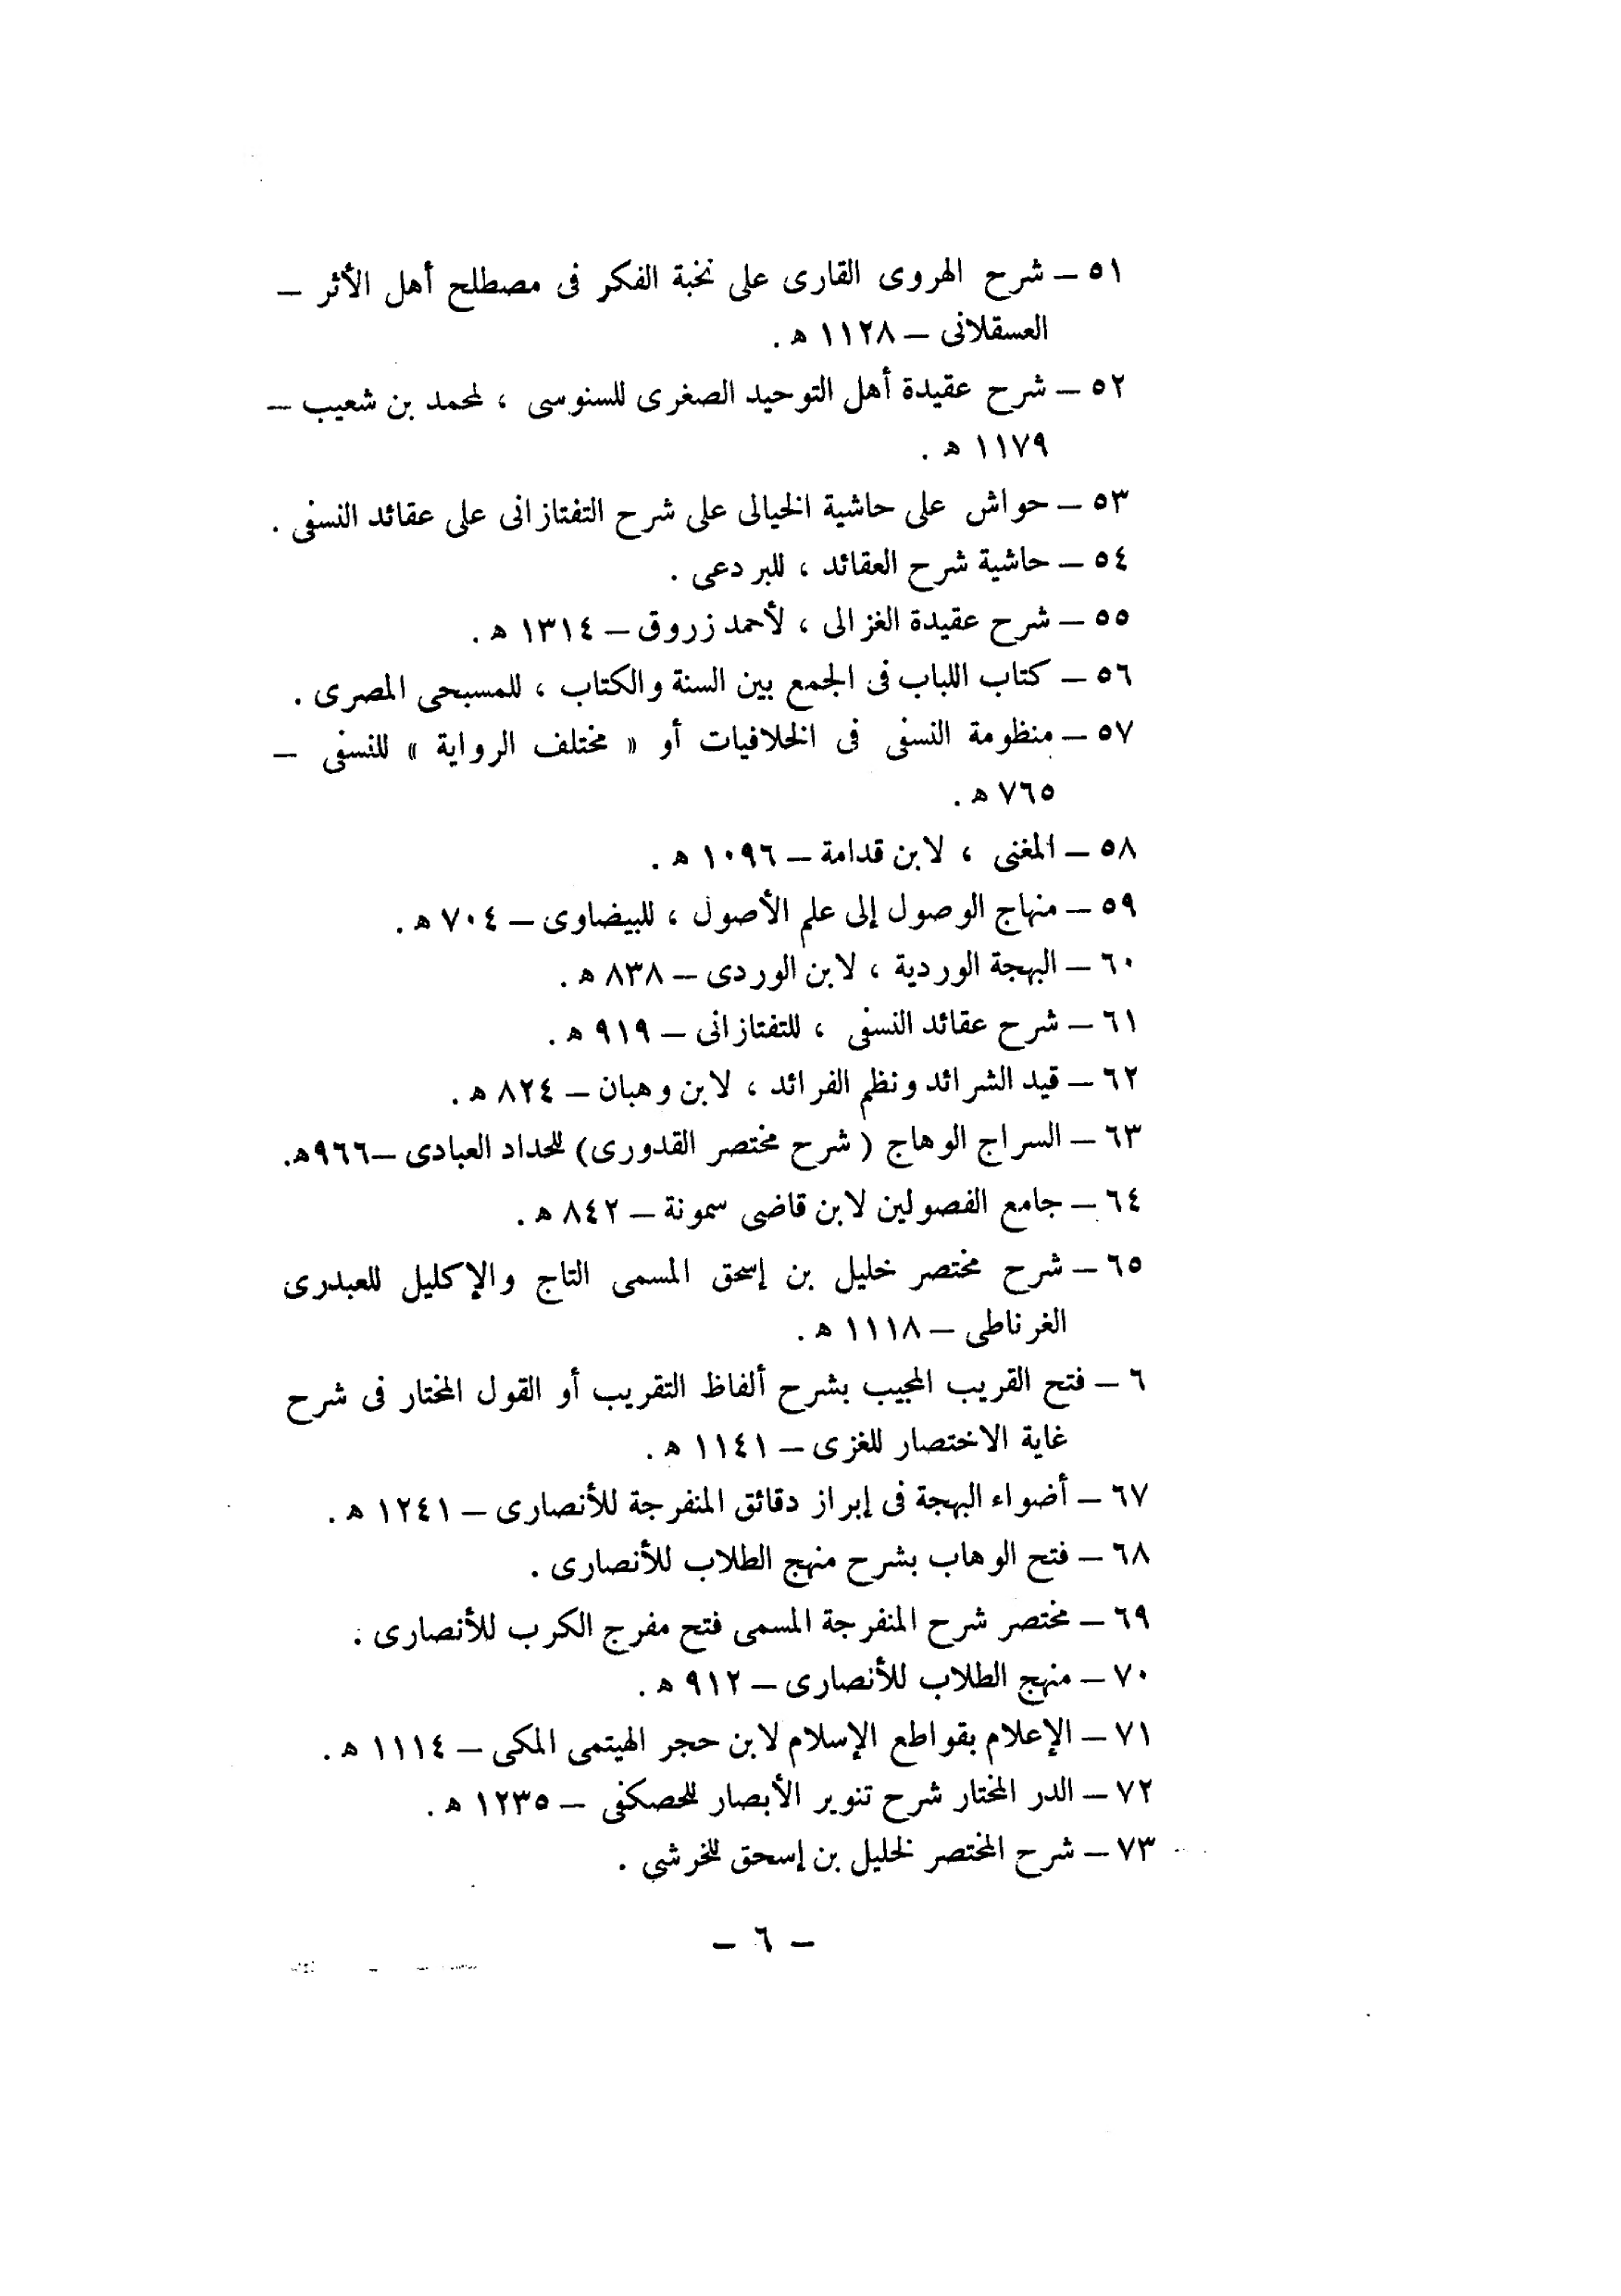 ٥١ – شرح الهروى القارى على نخبة الفكر فى مصطلح أهل الأثر –
العسقلانى – ١١٢٨ ه .
٥٢ – شرح عقيدة أهل التوحيد الصغرى للسنوسى ، لمحمد بن شعيب –
١١٧٩ ه .
٥٣ – حواش على حاشية الخيالى على شرح التفتازانى على عقائد النسفى .
٥٤ – حاشية شرح العقائد ، للبردعى .
٥٥ – شرح عقيدة الغزالى ، لأحمد زروق – ١٣١٤ ه .
٥٦ – كتاب اللباب فى الجمع بين السنة والكتاب ، للمسبحى المصرى .
٥٧ – منظومة النسفى فى الخلافيات أو « مختلف الرواية » للنسفى –
٧٦٥ ه .
٥٨ – المغنى ، لابن قدامة – ١٠٩٦ ه .
٥٩ – منهاج الوصول إلى علم الأصول ، للبيضاوى – ٧٠٤ ه .
٦٠ – البهجة الوردية ، لابن الوردى – ٨٣٨ ه .
٦١ – شرح عقائد النسفى ، للتفتازانى – ٩١٩ ه .
٦٢ – قيد الشرائد ونظم الفرائد ، لابن وهبان – ٨٢٤ ه .
٦٣ – السراج الوهاج ( شرح مختصر القدورى) للحداد العبادى –٩٦٦ه.
٦٤ – جامع الفصولين لابن قاضى سمونة – ٨٤٢ ه .
٦٥ – شرح مختصر خليل بن إسحق المسمى التاج والإكليل للعبدرى
الغرناطى – ١١١٨ ه .
٦ – فتح القريب المجيب بشرح ألفاظ التقريب أو القول المختار فى شرح
غاية الاختصار للغزى – ١١٤١ ه .
٦٧ – أضواء البهجة فى إبراز دقائق المنفرجة للأنصارى – ١٢٤١ ه .
٦٨ – فتح الوهاب بشرح منهج الطلاب للأنصارى .
٦٩ – مختصر شرح المنفرجة المسمى فتح مفرج الكرب للأنصارى .
٧٠ – منهج الطلاب للأنصارى – ٩١٢ ه .
٧١ – الإعلام بقواطع الإسلام لابن حجر الهيتمى المكى – ١١١٤ ه .
٧٢ – الدر المختار شرح تنوير الأبصار للحصكفى – ١٢٣٥ ه .
٧٣ – شرح المختصر لخليل بن إسحق للخرشى .
– ٦ –